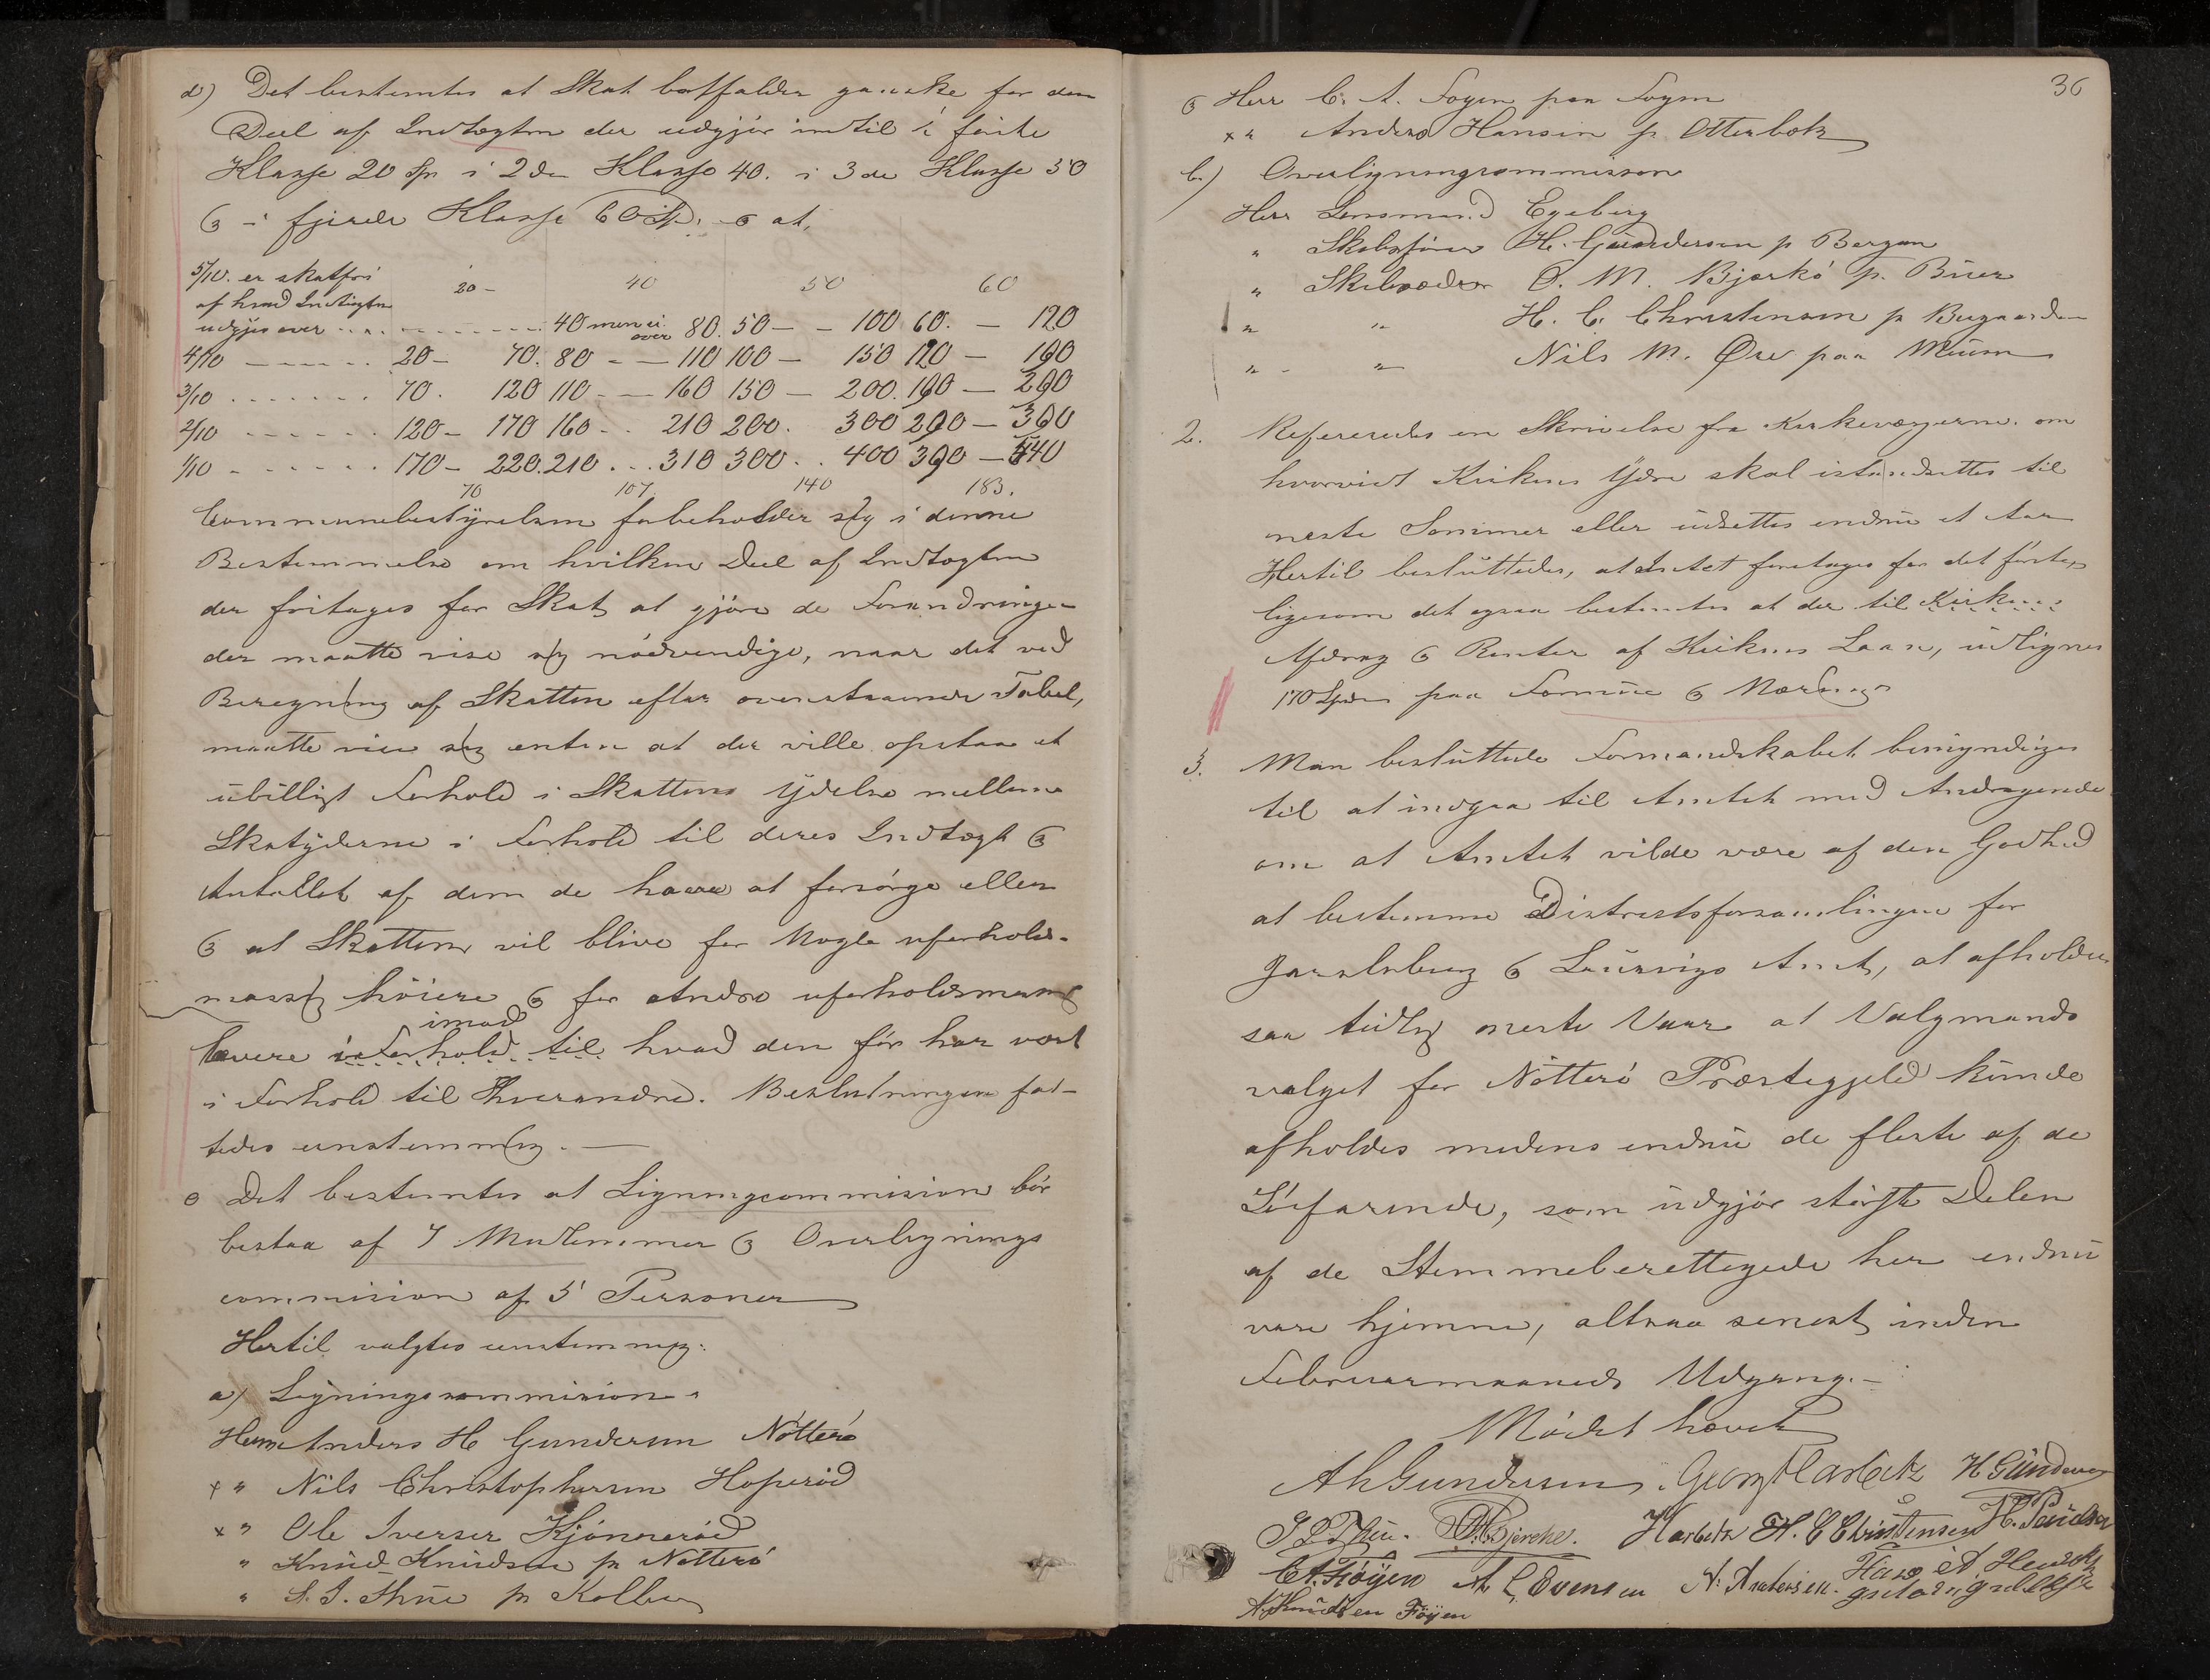 d) Det bestemtes at Skat bortfalder ganske for den
Deel af Indtægten der udgjør indtil i første
Klasse 20 Spr i 2den Klasse 40. i 3de Klasse 50
& i fjerde Klasse 60 Sp. & at,
5/10. er skatfri
af hvad Indtægten
udgjør over
20 - 40 50 60
40 men ei over 80. 50 - - 100 60. - 120
4/10 - - - 20 - 70. 80 - - 110 100 - 150 120 - 190
3/10 . . . . 70. 120 110 - - 160 150 - 200. 190 - 290
2/10 - - - - 120 - 170 160 - . 210 200. 300 290 - 390
1/10 - - - - 170 - 220. 210 . . . 310 300 . . 400 390 - 540
70 107 140 183.
Communebestyrelsen forbeholder sig i denne
Bestemmelse om hvilken Deel af Indtægten
der fritages for Skat at gjøre de Forandringer
der maatte vise sig nødvendige, naar det ved
Beregning af Skatten efter ovenstaaende Tabel,
maatte vise sig enten at der ville opstaa et
ubilligt Forhold i Skattens Ydelse mellem
Skatyderne i Forhold til deres Indtægt &
Antallet af dem de have at forsørge eller
& at Skatten vil blive for Nogle uforholds-
mæssig høiere & for Andre uforholdsmæssig
imod
lavere i Forhold til hvad den før har vært
i Forhold til Hverandre. Beslutningen fat-
tedes enstemmig. —
e Det bestemtes at Ligningscommision bør
bestaa af 7 Medlemmer & Overlignings
commision af 5 Personer
Hertil valgtes enstemmig:
a) Ligningscommision
Herr Anders H Gundersen Nøtterø
x " Nils Christophersen Hoperød
x " Ole Iversen Kjønnerød
" Knud Knudsen p Nøtterø
" S. I. Thue p Kolbe
36
& Herr C. A. Foyen paa Foyen
x " Anders Hansen p Otterbæk
b.) Overligningscommision
Herr Lensmand Egeberg
" Skibsfører H. Gundersen p Bergan
" Skibsreder O. M. Bjerkø p. Buer
" " H. C. Christensen p Buegaarden
" " Nils M. Øre paa Meum
2. Refereredes en Skrivelse fra Kirkeværgerne. om
hvorvidt Kirkens Ydre skal istandsettes til
neste Sommer eller udsettes endnu et Aar
Hertil besluttedes, at Intet foretages for det første,
ligesom det ogsaa bestemtes at der til Kirkens
Afdrag & Renter af Kirkens Laan, udlignes
170 Spd paa Formue & Næring
3. Man besluttede Formandskabet bemyndiges
til at indgaa til Amtet med Andragende
om at Amtet vilde være af den Godhed
at bestemme Distriktsforsamlingen for
Jarlsberg & Laurvigs Amt, at afholdes
saa tidlig neste Vaar at Valgmands
valget for Nøtterø Præstegjeld kunde
afholdes medens endnu de fleste af de
Søfarende, som udgjør største Delen
af de Stemmeberettigede her endnu
vare hjemme, altsaa senest inden
Februarmaaneds Udgang. -
Mødet hævet
A H Gundersen. Georg Harbitz H Gundersen
S I Thue. Bjerche. Harbitz H. C Christensen H. Paulsen
C A. Föÿen A L Evensen N. Andersen. Hans A. Hen
A. Knudsen Föÿen